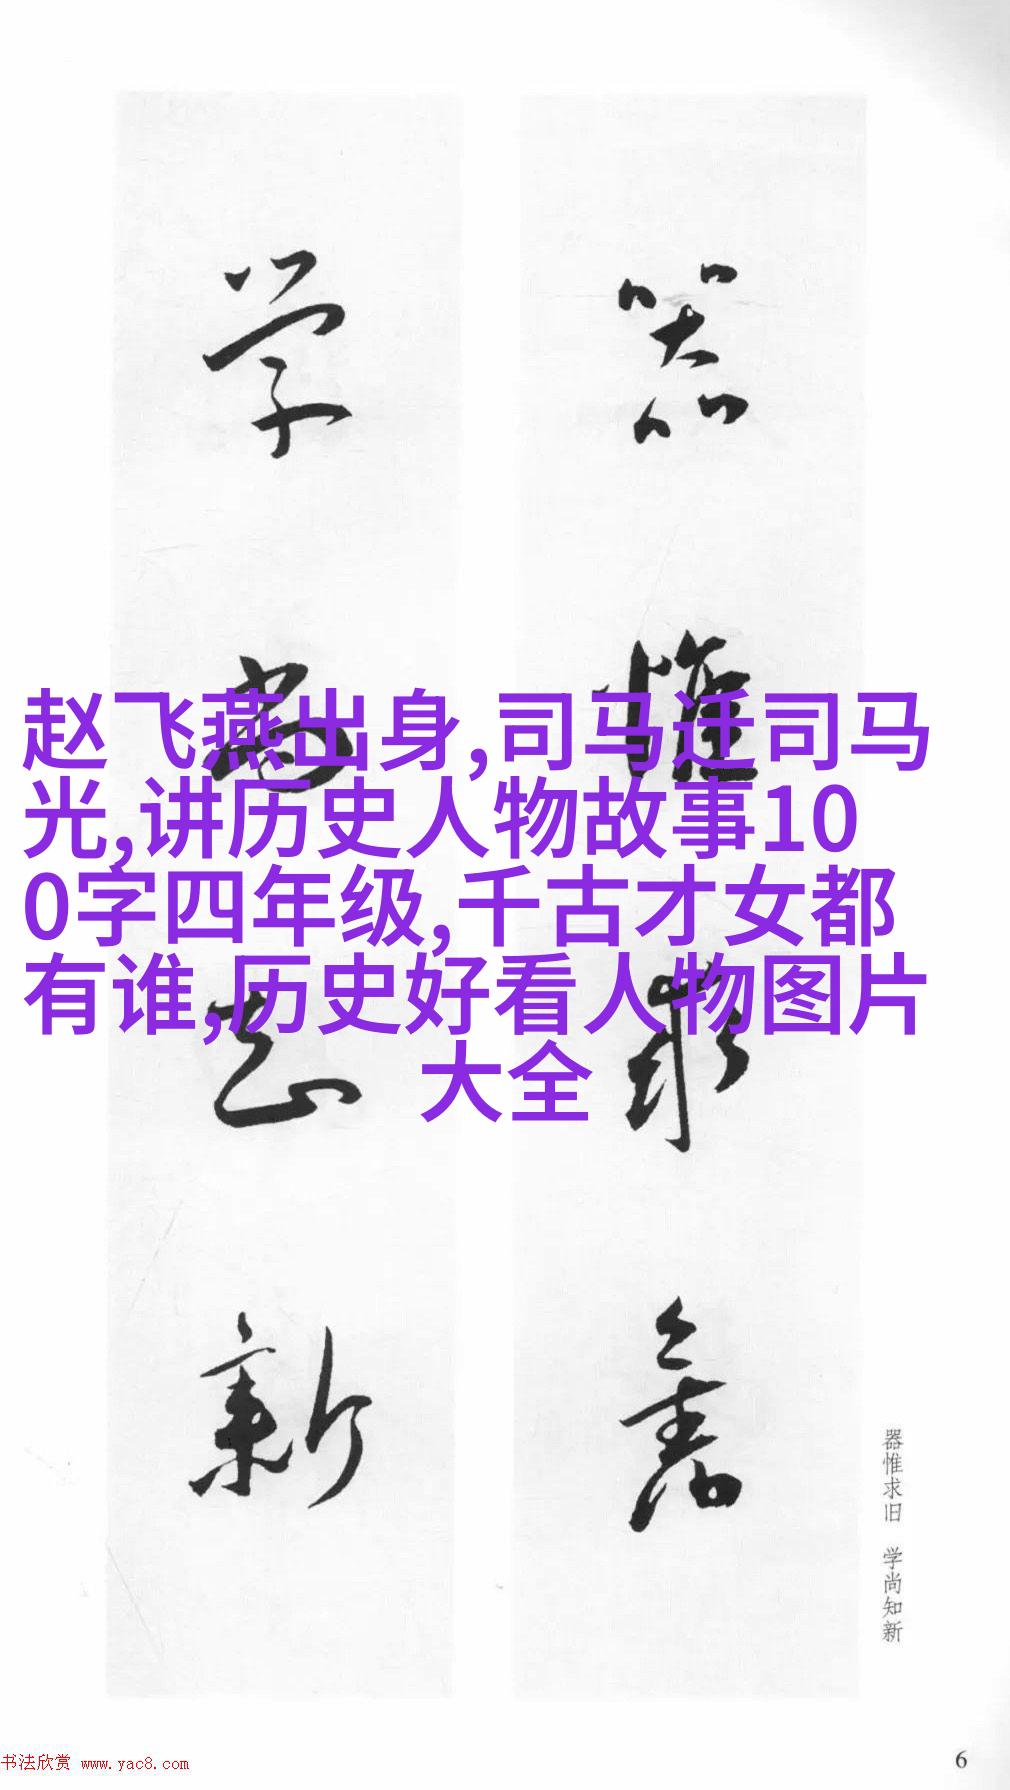 器惟求舊
学尚知新
赵飞燕出身,司马迁司马
光,讲历史人物故事10
0字四年级,千古才女都
有谁,历史好看人物图片
大全
器惟求旧 学尚知新
书法欣赏 www.yac8.com
6